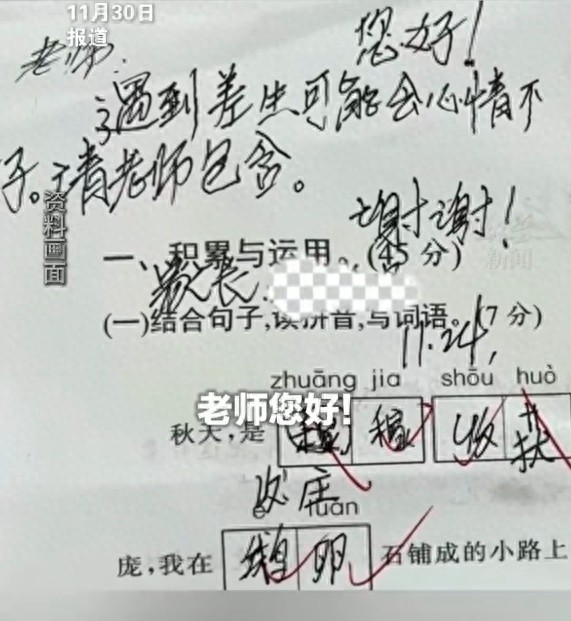 11月30日
报道
老师: 您好!
遇到差生可能会心情不
子。请老师包含。
谢谢!
资料画面
新闻
一、积累与运用。(45分)
家长
(一)结合句子,读拼音,写词语。(7分)
11.24
zhuāng jia shōu huò
老师您好!
秋天,是 稼 收
庄
é luǎn
庞,我在 鹅卵 石铺成的小路上